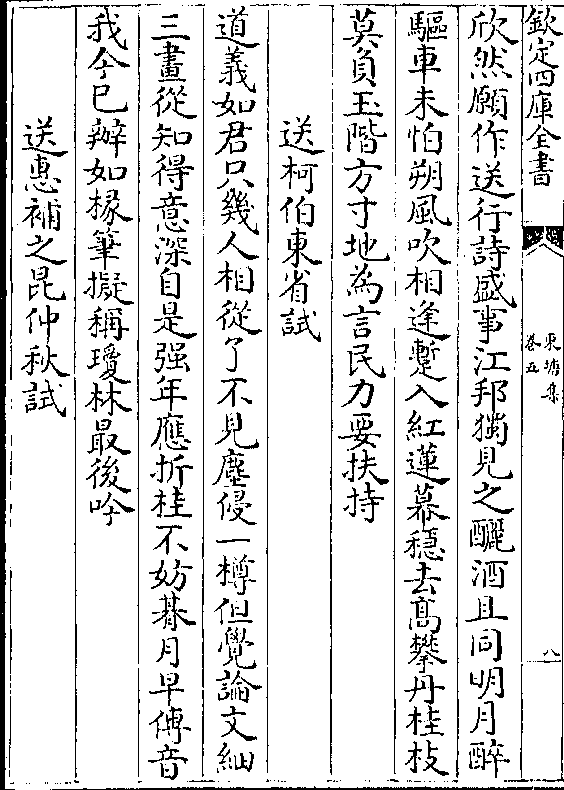 欽定四庫全書
東塘集
卷五
八
欣然願作送行詩盛事江邦獨見之釃酒且同明月醉
驅車未怕朔風吹相逢蹔入紅蓮幕穩去髙攀丹桂枝
莫負玉階方寸地為言民力要扶持
送柯伯東省試
道義如君只幾人相從了不見塵侵一樽但覺論文細
三畫從知得意深自是强年應折桂不妨朞月早傅音
我今已辦如椽筆擬稱瓊林最後吟
送惠補之昆仲秋試